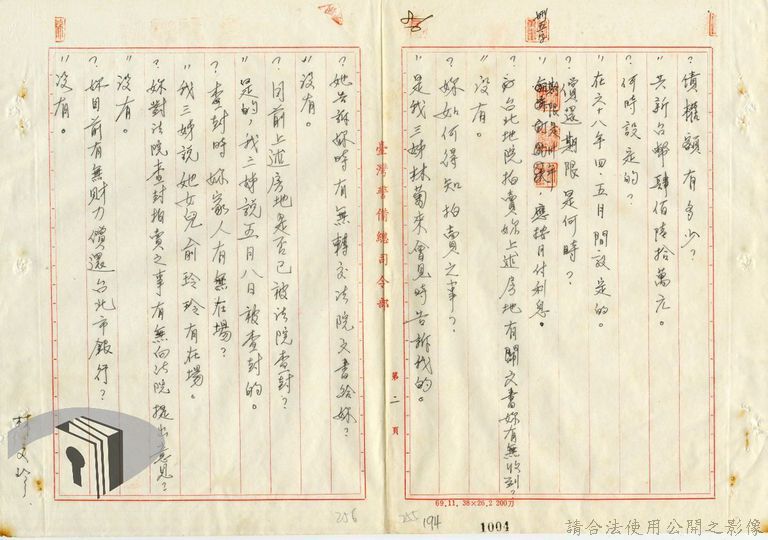 ?債權額有多少?
"共新台幣肆佰陸拾萬元。
?何時設定的?
"在六十八年四、五月間設定的。
?償還期限是何時?
應按月付利息。
?台北地院拍賣妳上述房地有關文書妳有無收到?
"沒有。
?妳如何得知拍賣之事?
"是我三姊林菊來會見時告訴我的。
臺灣警備總司令部
第二頁
?她告訴妳時有無轉交法院文書給妳?
"沒有。
?目前上述房地是否已被法院查封?
"是的,我三姊說五月八日被查封的。
?查封時妳家人有無在場?
"我三姊說她女兒俞玲玲有在場。
?妳對法院查封拍賣之事有無向法院提出意見?
"沒有。
?妳目前有無財力償還台北市銀行?
"沒有。
69.11. 38×26.2 200刀
256
255
194
1004
請合法使用公開之影像